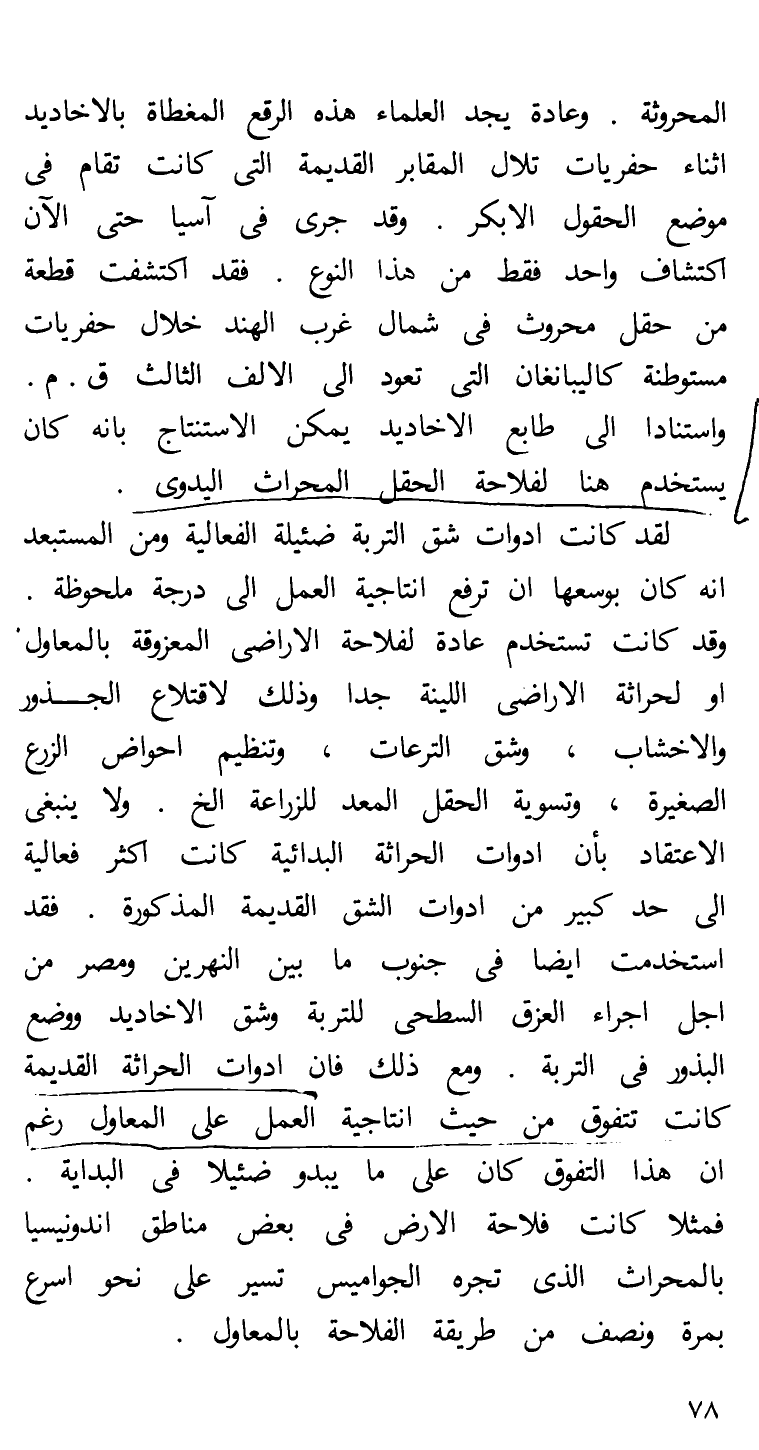 المحروثة . وعادة يجد العلماء هذه الرقع المغطاة بالاخاديد
اثناء حفريات تلال المقابر القديمة التى كانت تقام فى
موضع الحقول الابكر . وقد جرى فى آسيا حتى الآن
اكتشاف واحد فقط من هذا النوع . فقد اكتشفت قطعة
من حقل محروث فى شمال غرب الهند خلال حفريات
مستوطنة كاليبانغان التى تعود الى الالف الثالث ق . م .
واستنادا الى طابع الاخاديد يمكن الاستنتاج بانه كان
يستخدم هنا لفلاحة الحقل المحراث اليدوى .
لقد كانت ادوات شق التربة ضئيلة الفعالية ومن المستبعد
انه كان بوسعها ان ترفع انتاجية العمل الى درجة ملحوظة .
وقد كانت تستخدم عادة لفلاحة الاراضى المعزوقة بالمعاول
او لحراثة الاراضى اللينة جدا وذلك لاقتلاع الجــــذور
والاخشاب ، وشق الترعات ، وتنظيم احواض الزرع
الصغيرة ، وتسوية الحقل المعد للزراعة الخ . ولا ينبغى
الاعتقاد بأن ادوات الحراثة البدائية كانت اكثر فعالية
الى حد كبير من ادوات الشق القديمة المذكورة . فقد
استخدمت ايضا فى جنوب ما بين النهرين ومصر من
اجل اجراء العزق السطحى للتربة وشق الاخاديد ووضع
البذور فى التربة . ومع ذلك فان ادوات الحراثة القديمة
كانت تتفوق من حيث انتاجية العمل على المعاول رغم
ان هذا التفوق كان على ما يبدو ضئيلا فى البداية .
فمثلا كانت فلاحة الارض فى بعض مناطق اندونيسيا
بالمحراث الذى تجره الجواميس تسير على نحو اسرع
بمرة ونصف من طريقة الفلاحة بالمعاول .
٧٨